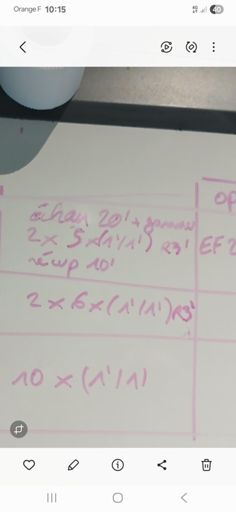 Orange F 10:15
40
OP
échau 20' + gammes
2 x 5 x (1'/1') R3' EF 2
récup 10'
2 x 6 x (1'/1') R3'
10 x (1'/1)